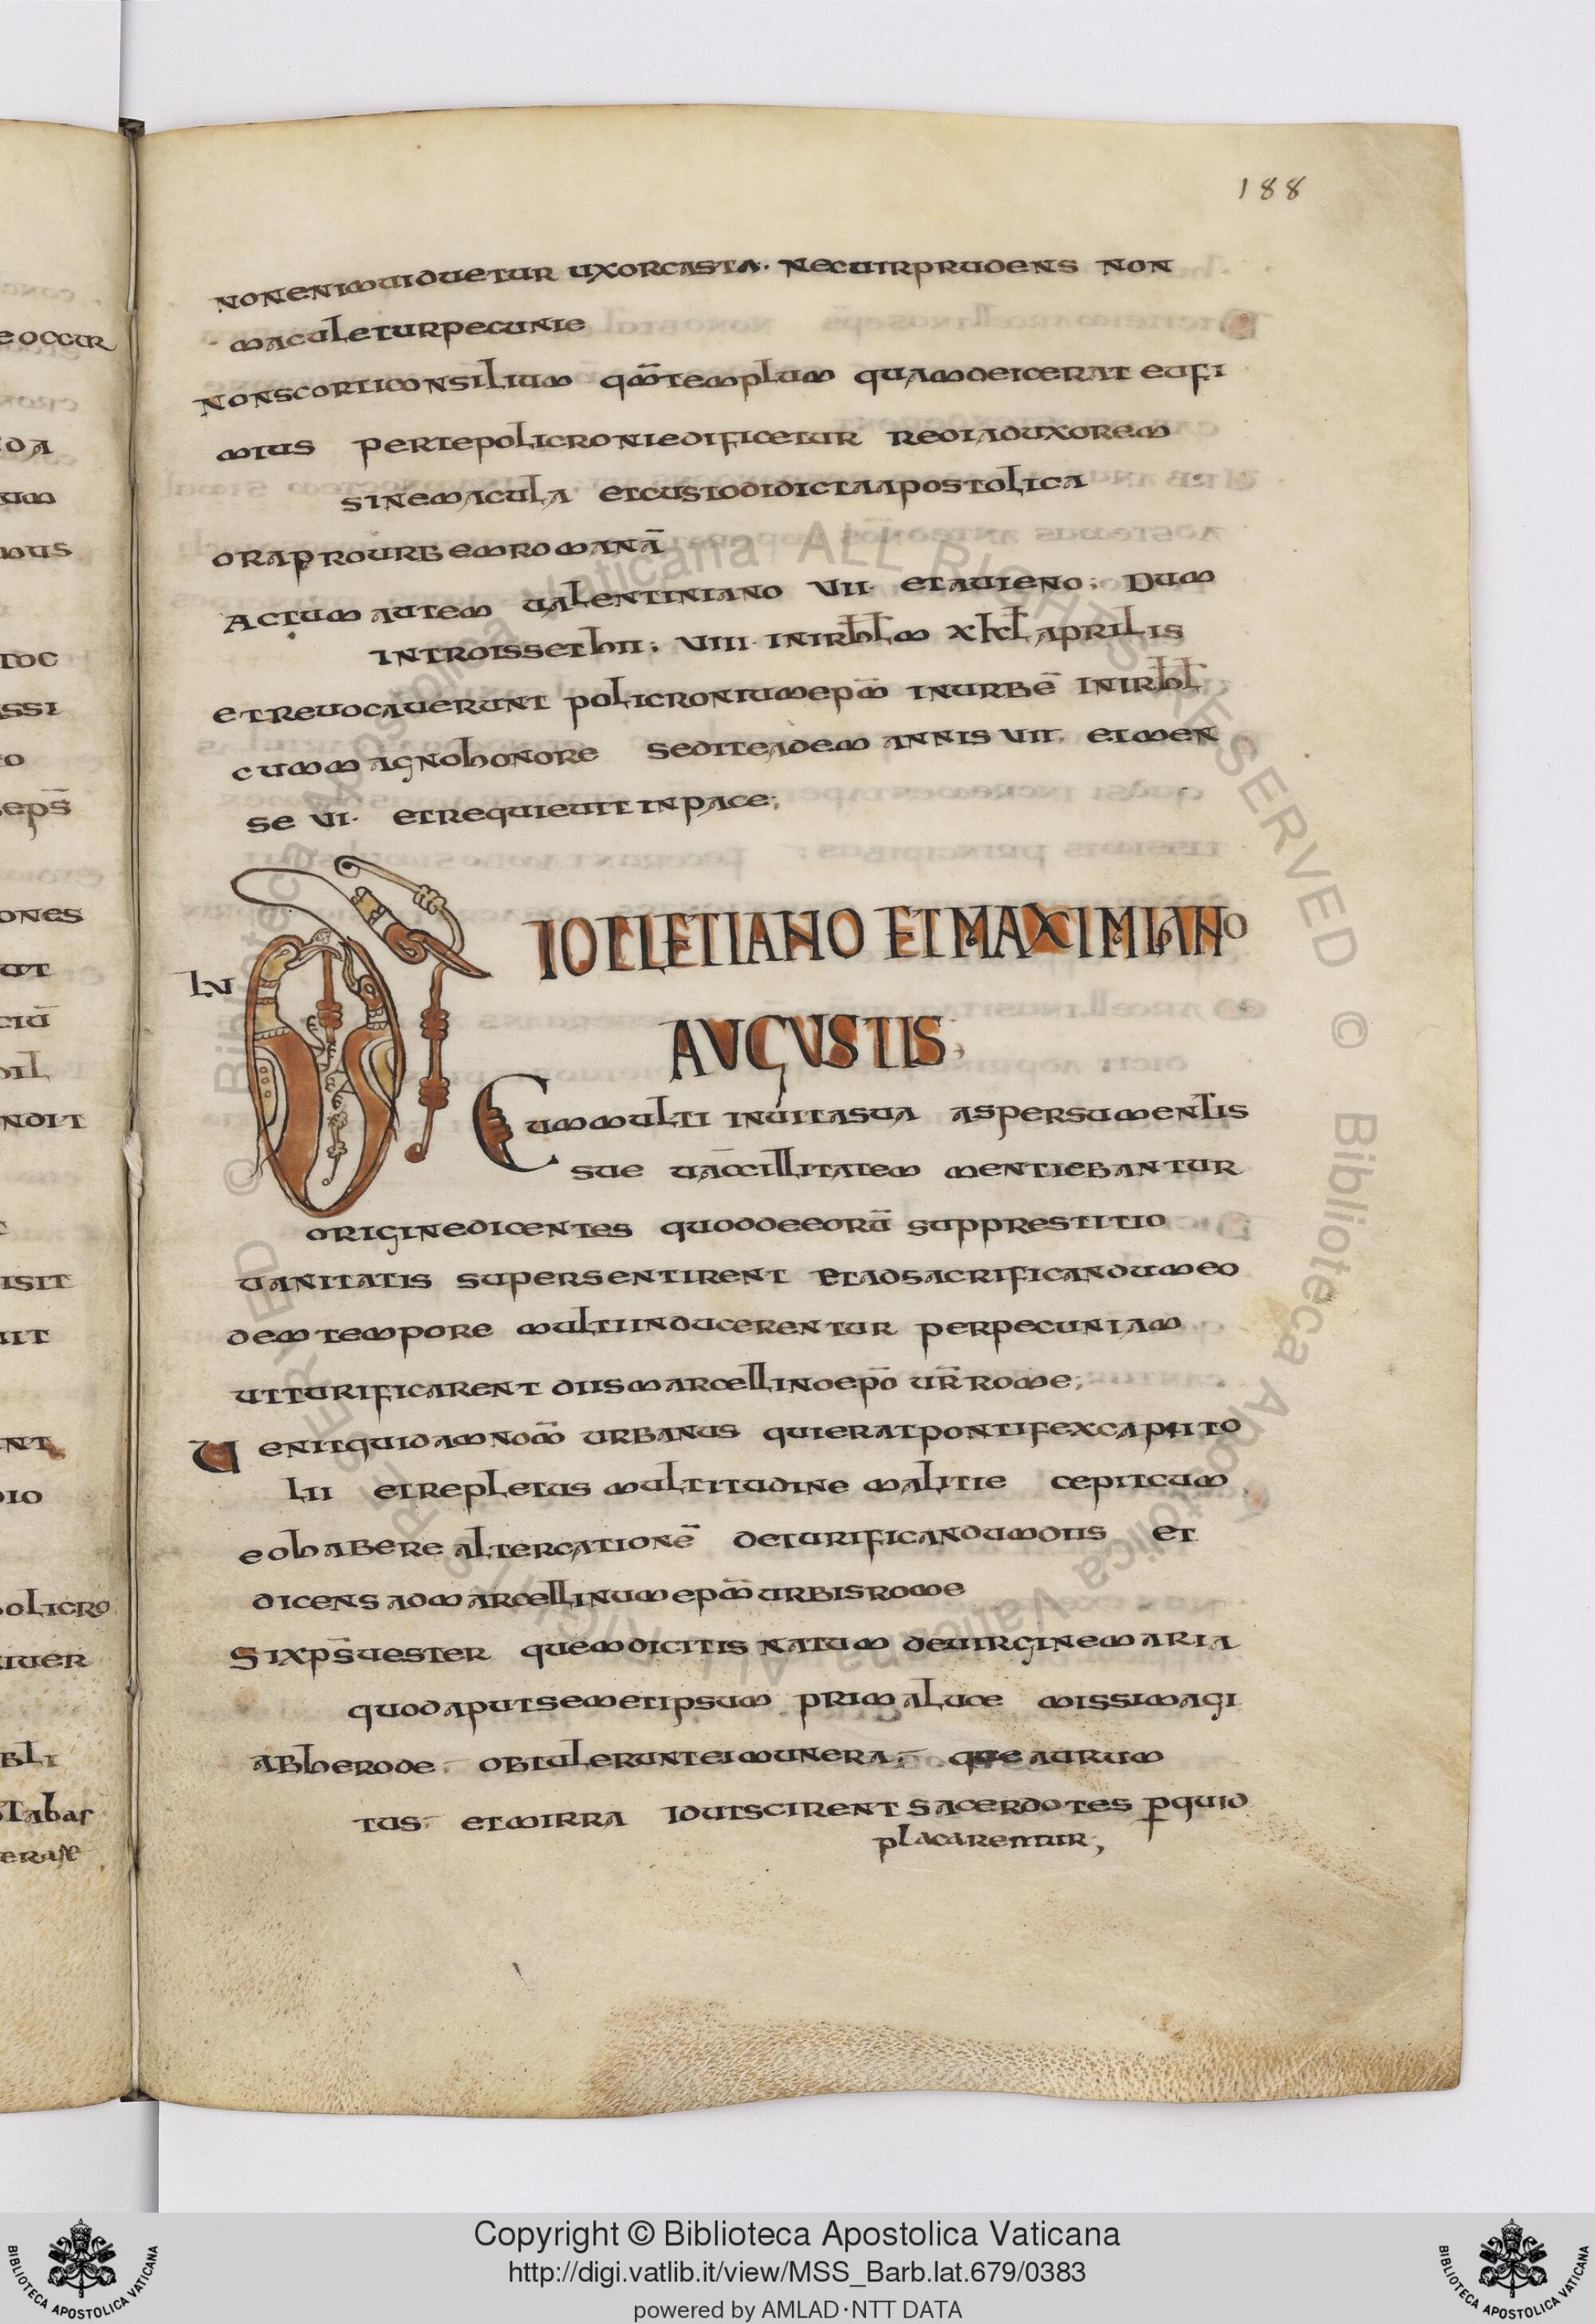 188
non enim uiduetur uxor casta · nec uir prudens non
maculetur pecunie
non scorti consilium qm̄ templum quam deicerat eufi
mius per te policroni edificetur redi ad uxorem
sine macula et custodi dicta apostolica
ora pro urbem romanā
Actum autem ualentiniano VII · et auieno ; Dum
introisset hII ; VIII · in irhlm X kl aprilis
et reuocauerunt policronium epm̄ in urbē in irhl
cum magno honore sedit eadem annis VII · et men
se VI · et requieuit in pace ;
LV
DIOCLETIANO ET MAXIMIANO
AUGUSTIS ;
Cum multi in uita sua aspersu mentis
sue uaccillitatem mentiebantur
origine dicentes quod de eorū supprestitio
uanitatis supersentirent et ad sacrificandum eo
dem tempore multi inducerentur per pecuniam
ut turificarent diis marcellino epō ur̄ rome ;
Uenit quidam nom̄ urbanus qui erat pontifex capito
lii et repletus multitudine malitie cepit cum
eo habere altercationē de turificandum diis et
dicens ad marcellinum epm̄ urbis rome
Si xps̄ uester quem dicitis natum de uirgine maria
quod aput semetipsum prima luce missi magi
ab herode · obtulerunt ei munera · que aurum
tus · et mirra id ut scirent sacerdotes p̱ quid
placarentur ;
eoccur
oda
um
mus
toc
ssi
o
eps̄
ones
ut
ciū
ndit
isit
uit
nt
dio
olicro
iuer
bli
stabas
Copyright © Biblioteca Apostolica Vaticana
http://digi.vatlib.it/view/MSS_Barb.lat.679/0383
powered by AMLAD·NTT DATA
BIBLIOTECA APOSTOLICA VATICANA
BIBLIOTECA APOSTOLICA VATICANA